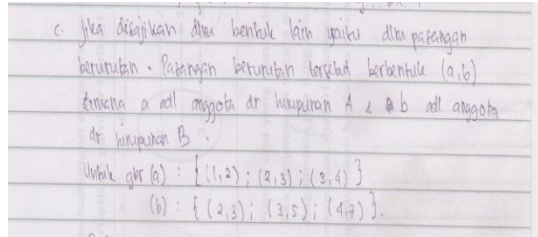 c. Jika disajikan dlm bentuk lain yaitu dlm pasangan
berurutan. Pasangan berurutan tersebut berbentuk (a,b)
dimana a adl anggota dr himpunan A & b adl anggota
dr himpunan B.
Untuk gbr (a) : {(1,2) ; (2,3) ; (3,4)}
(b) : {(2,3) ; (3,5) ; (4,7)}.